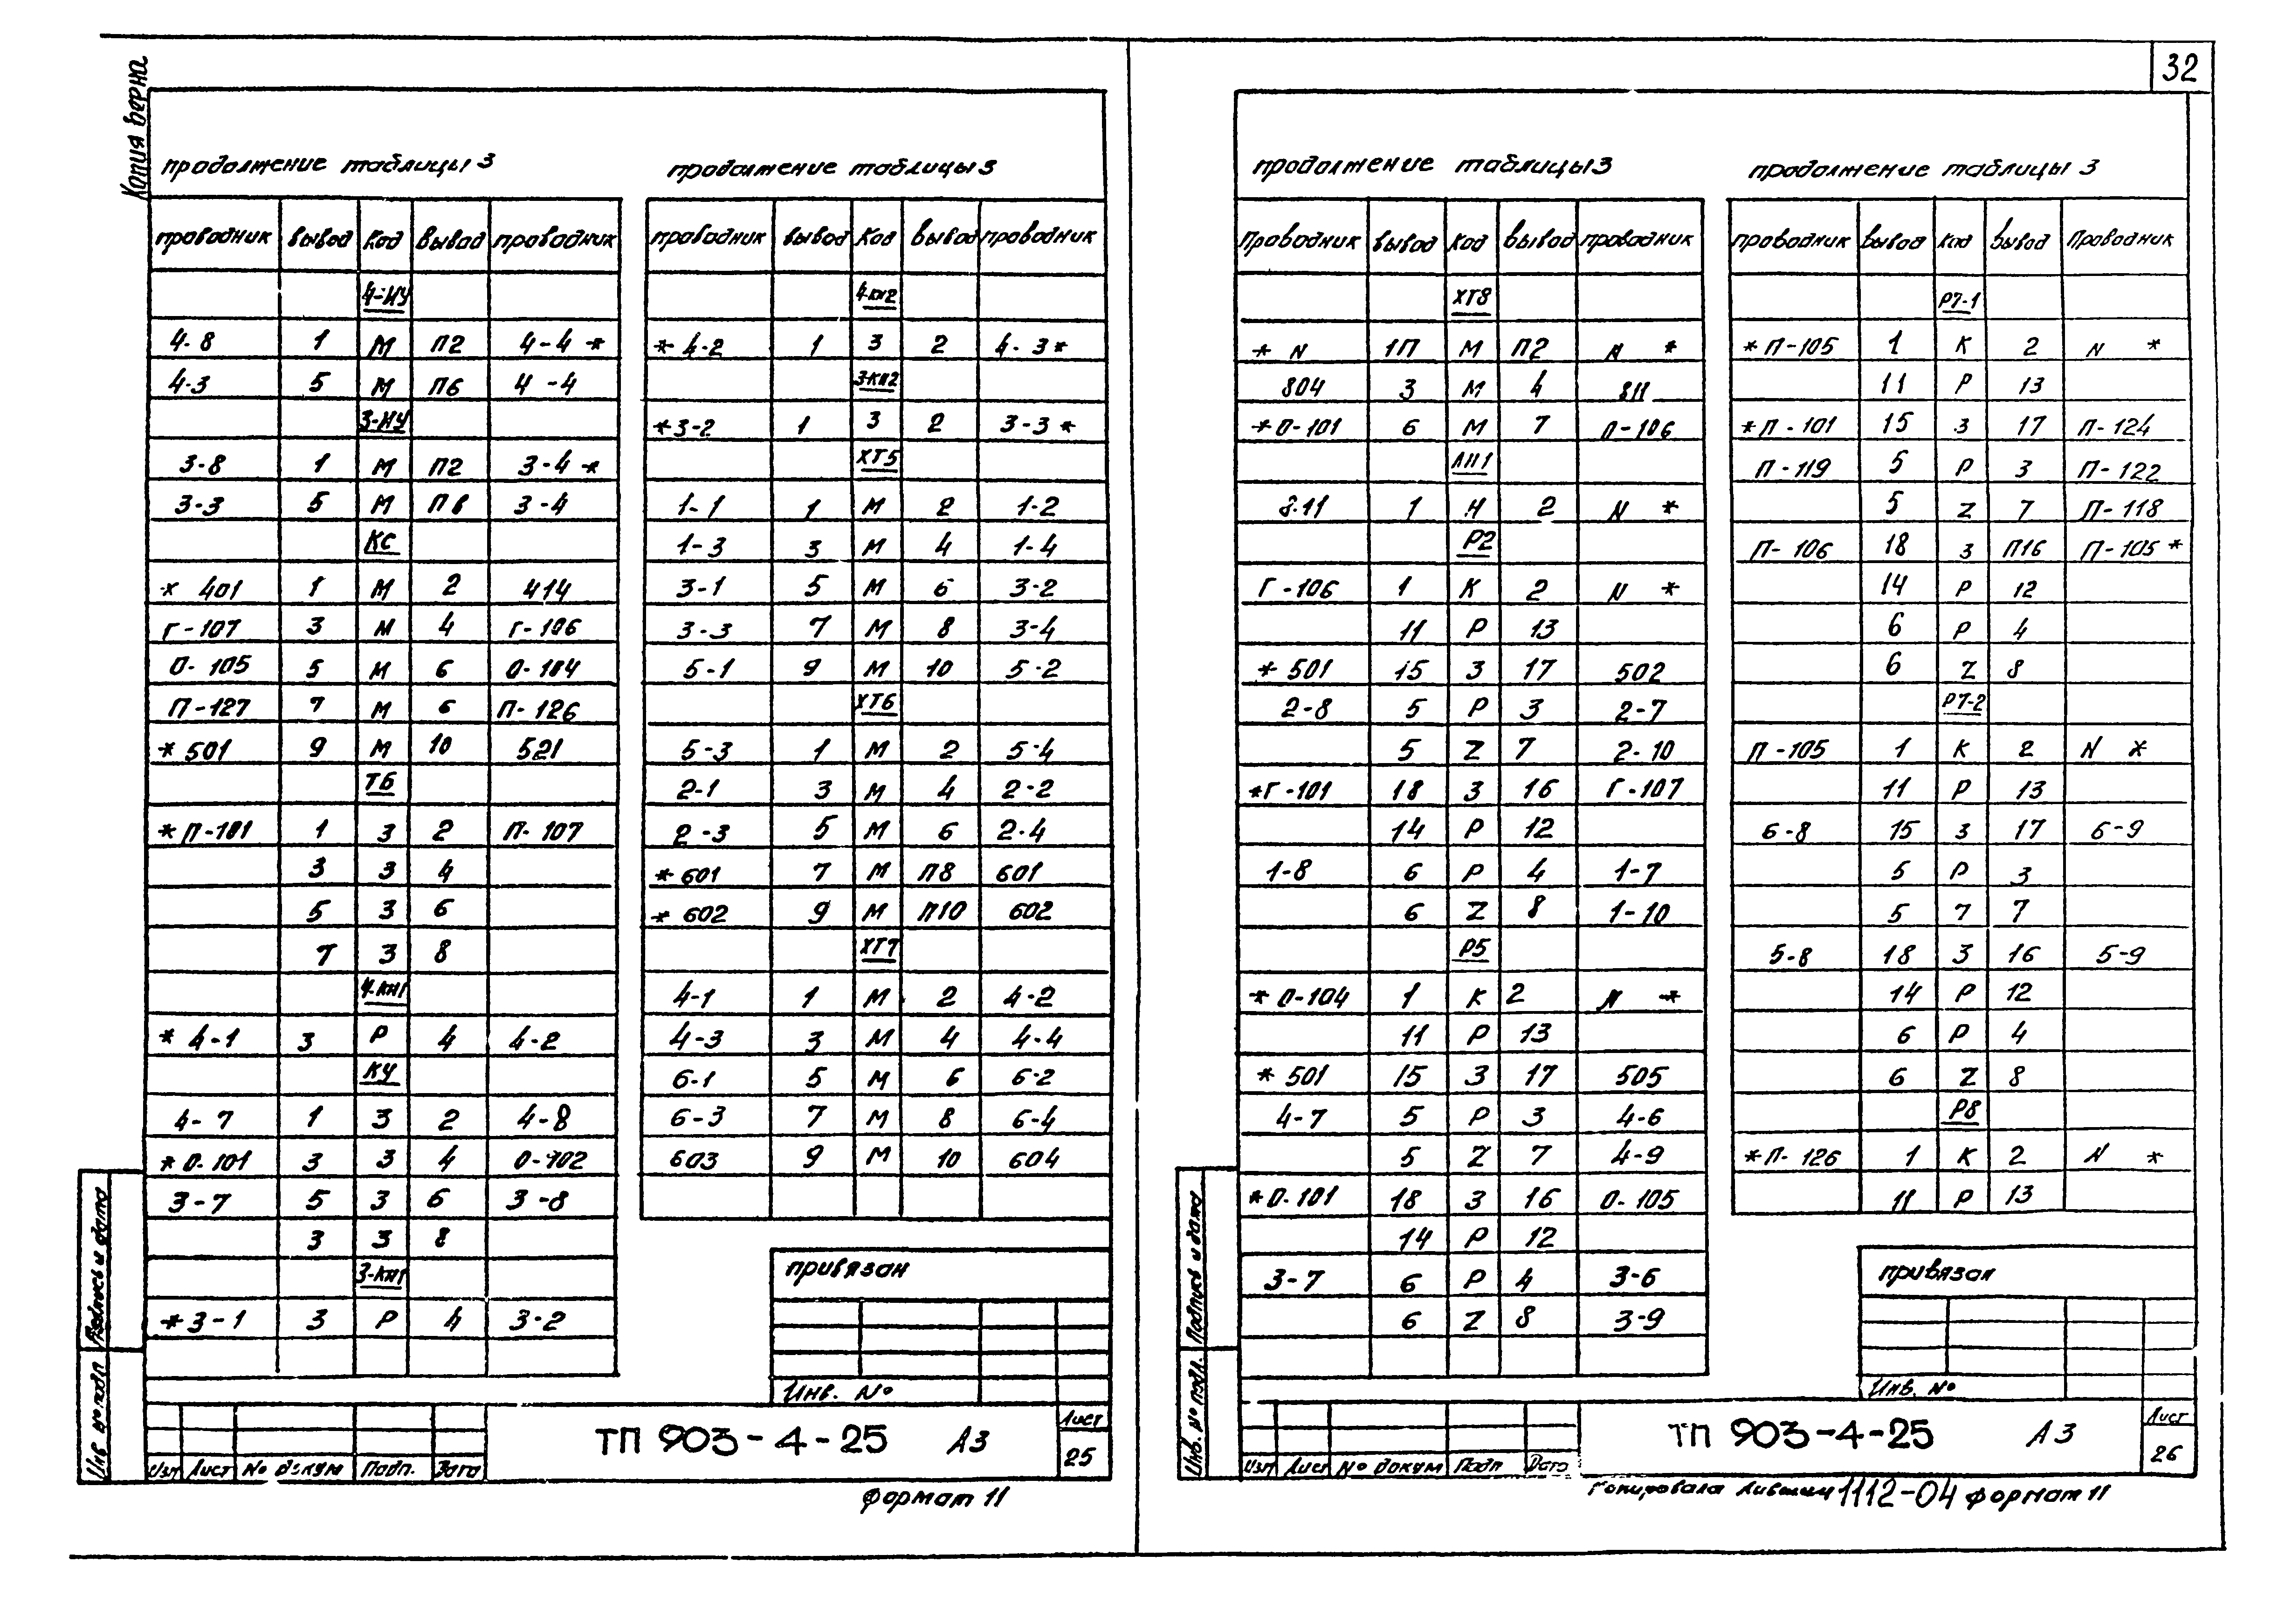 32
Копия верна
продолжение таблицы 3
проводник вывод Код вывод проводник
4-НУ
4-8 1 М П2 4-4 *
4-3 5 М П6 4-4
3-НУ
3-8 1 М П2 3-4 *
3-3 5 М П6 3-4
КС
* 401 1 М 2 414
Г-107 3 М 4 Г-106
О-105 5 М 6 О-104
П-127 7 М 6 П-126
* 501 9 М 10 521
Т6
* П-101 1 З 2 П-107
3 З 4
5 З 6
7 З 8
4-КН1
* 4-1 3 Р 4 4-2
КУ
4-7 1 З 2 4-8
* О-101 3 З 4 О-102
3-7 5 З 6 3-8
3 З 8
3-КН1
* 3-1 3 Р 4 3-2
продолжение таблицы 3
проводник вывод Код вывод проводник
4-КН2
* 4-2 1 З 2 4-3 *
3-КН2
* 3-2 1 З 2 3-3 *
ХТ5
1-1 1 М 2 1-2
1-3 3 М 4 1-4
3-1 5 М 6 3-2
3-3 7 М 8 3-4
5-1 9 М 10 5-2
ХТ6
5-3 1 М 2 5-4
2-1 3 М 4 2-2
2-3 5 М 6 2-4
* 601 7 М П8 601
* 602 9 М П10 602
ХТ7
4-1 1 М 2 4-2
4-3 3 М 4 4-4
6-1 5 М 6 6-2
6-3 7 М 8 6-4
603 9 М 10 604
привязан
Инв. №
Подпись и дата
Инв № подл
Изм Лист № докум Подп. Дата
ТП 903-4-25 А3
Лист
25
Формат 11
продолжение таблицы 3
Проводник вывод Код вывод проводник
ХТ8
* N 1П М П2 N *
804 3 М 4 811
* О-101 6 М 7 О-106
ЛН1
8-11 1 Н 2 N *
Р2
Г-106 1 К 2 N *
11 Р 13
* 501 15 З 17 502
2-8 5 Р 3 2-7
5 Z 7 2-10
* Г-101 18 З 16 Г-107
14 Р 12
1-8 6 Р 4 1-7
6 Z 8 1-10
Р5
* О-104 1 К 2 N *
11 Р 13
* 501 15 З 17 505
4-7 5 Р 3 4-6
5 Z 7 4-9
* О-101 18 З 16 О-105
14 Р 12
3-7 6 Р 4 3-6
6 Z 8 3-9
продолжение таблицы 3
проводник вывод Код вывод Проводник
Р7-1
* П-105 1 К 2 N *
11 Р 13
* П-101 15 З 17 П-124
П-119 5 Р 3 П-122
5 Z 7 П-118
П-106 18 З П16 П-105 *
14 Р 12
6 Р 4
6 Z 8
Р7-2
П-105 1 К 2 N *
11 Р 13
6-8 15 З 17 6-9
5 Р 3
5 7 7
5-8 18 З 16 5-9
14 Р 12
6 Р 4
6 Z 8
Р8
* П-126 1 К 2 N *
11 Р 13
привязан
Инв. №
Подпись и дата
Инв. № подл.
Изм Лист № докум Подп Дата
ТП 903-4-25 А3
Лист
26
Копировала 1112-04 формат 11